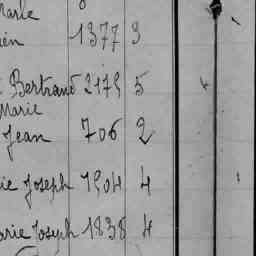 Marie
ien 1377 3
Bertrand 2175 5
Marie
Jean 706 2
ie Joseph 1504 4
arie Joseph 1838 4